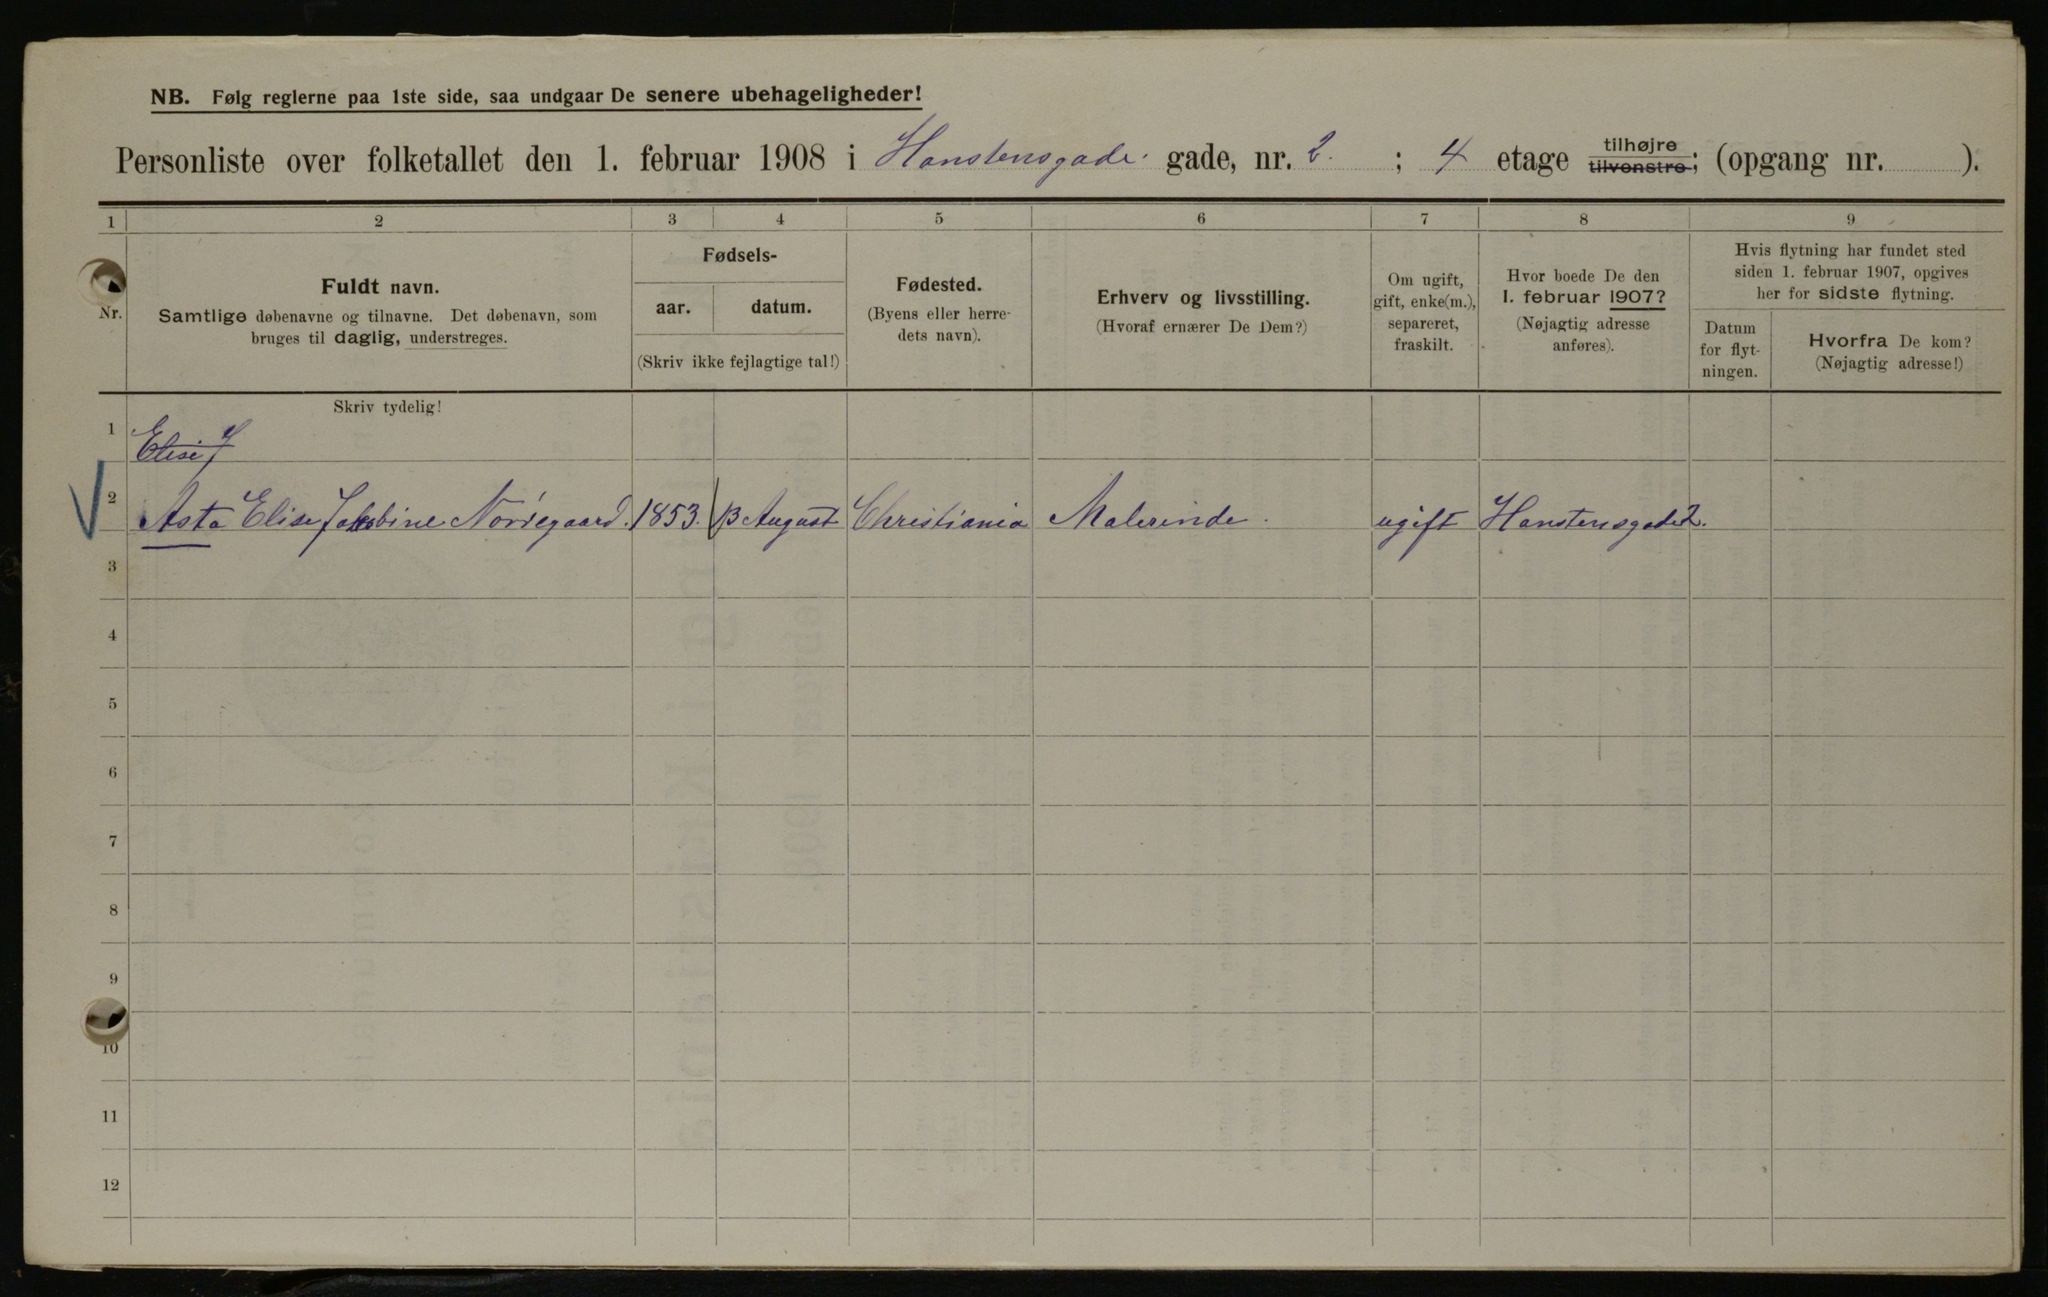 NB. Følg reglerne paa 1ste side, saa undgaar De senere ubehageligheder!
Personliste over folketallet den 1. februar 1908 i Hanstensgade. gade, nr. 2. ; 4 etage tilhøjre tilvenstre; (opgang nr. ).
1 2 3 4 5 6 7 8 9
Nr.
Fuldt navn.
Samtlige døbenavne og tilnavne. Det døbenavn, som
bruges til daglig, understreges.
Fødsels-
aar. datum.
(Skriv ikke fejlagtige tal!)
Fødested.
(Byens eller herre-
dets navn).
Erhverv og livsstilling.
(Hvoraf ernærer De Dem?)
Om ugift,
gift, enke(m.),
separeret,
fraskilt.
Hvor boede De den
1. februar 1907?
(Nøjagtig adresse
anføres).
Hvis flytning har fundet sted
siden 1. februar 1907, opgives
her for sidste flytning.
Datum
for flyt-
ningen.
Hvorfra De kom?
(Nøjagtig adresse!)
Skriv tydelig!
1 Elise J
2 Asta Elise Jakobine Nørregaard. 1853. 13 August Christiania Malerinde. ugift Hanstensgade 2.
3
4
5
6
7
8
9
10
11
12